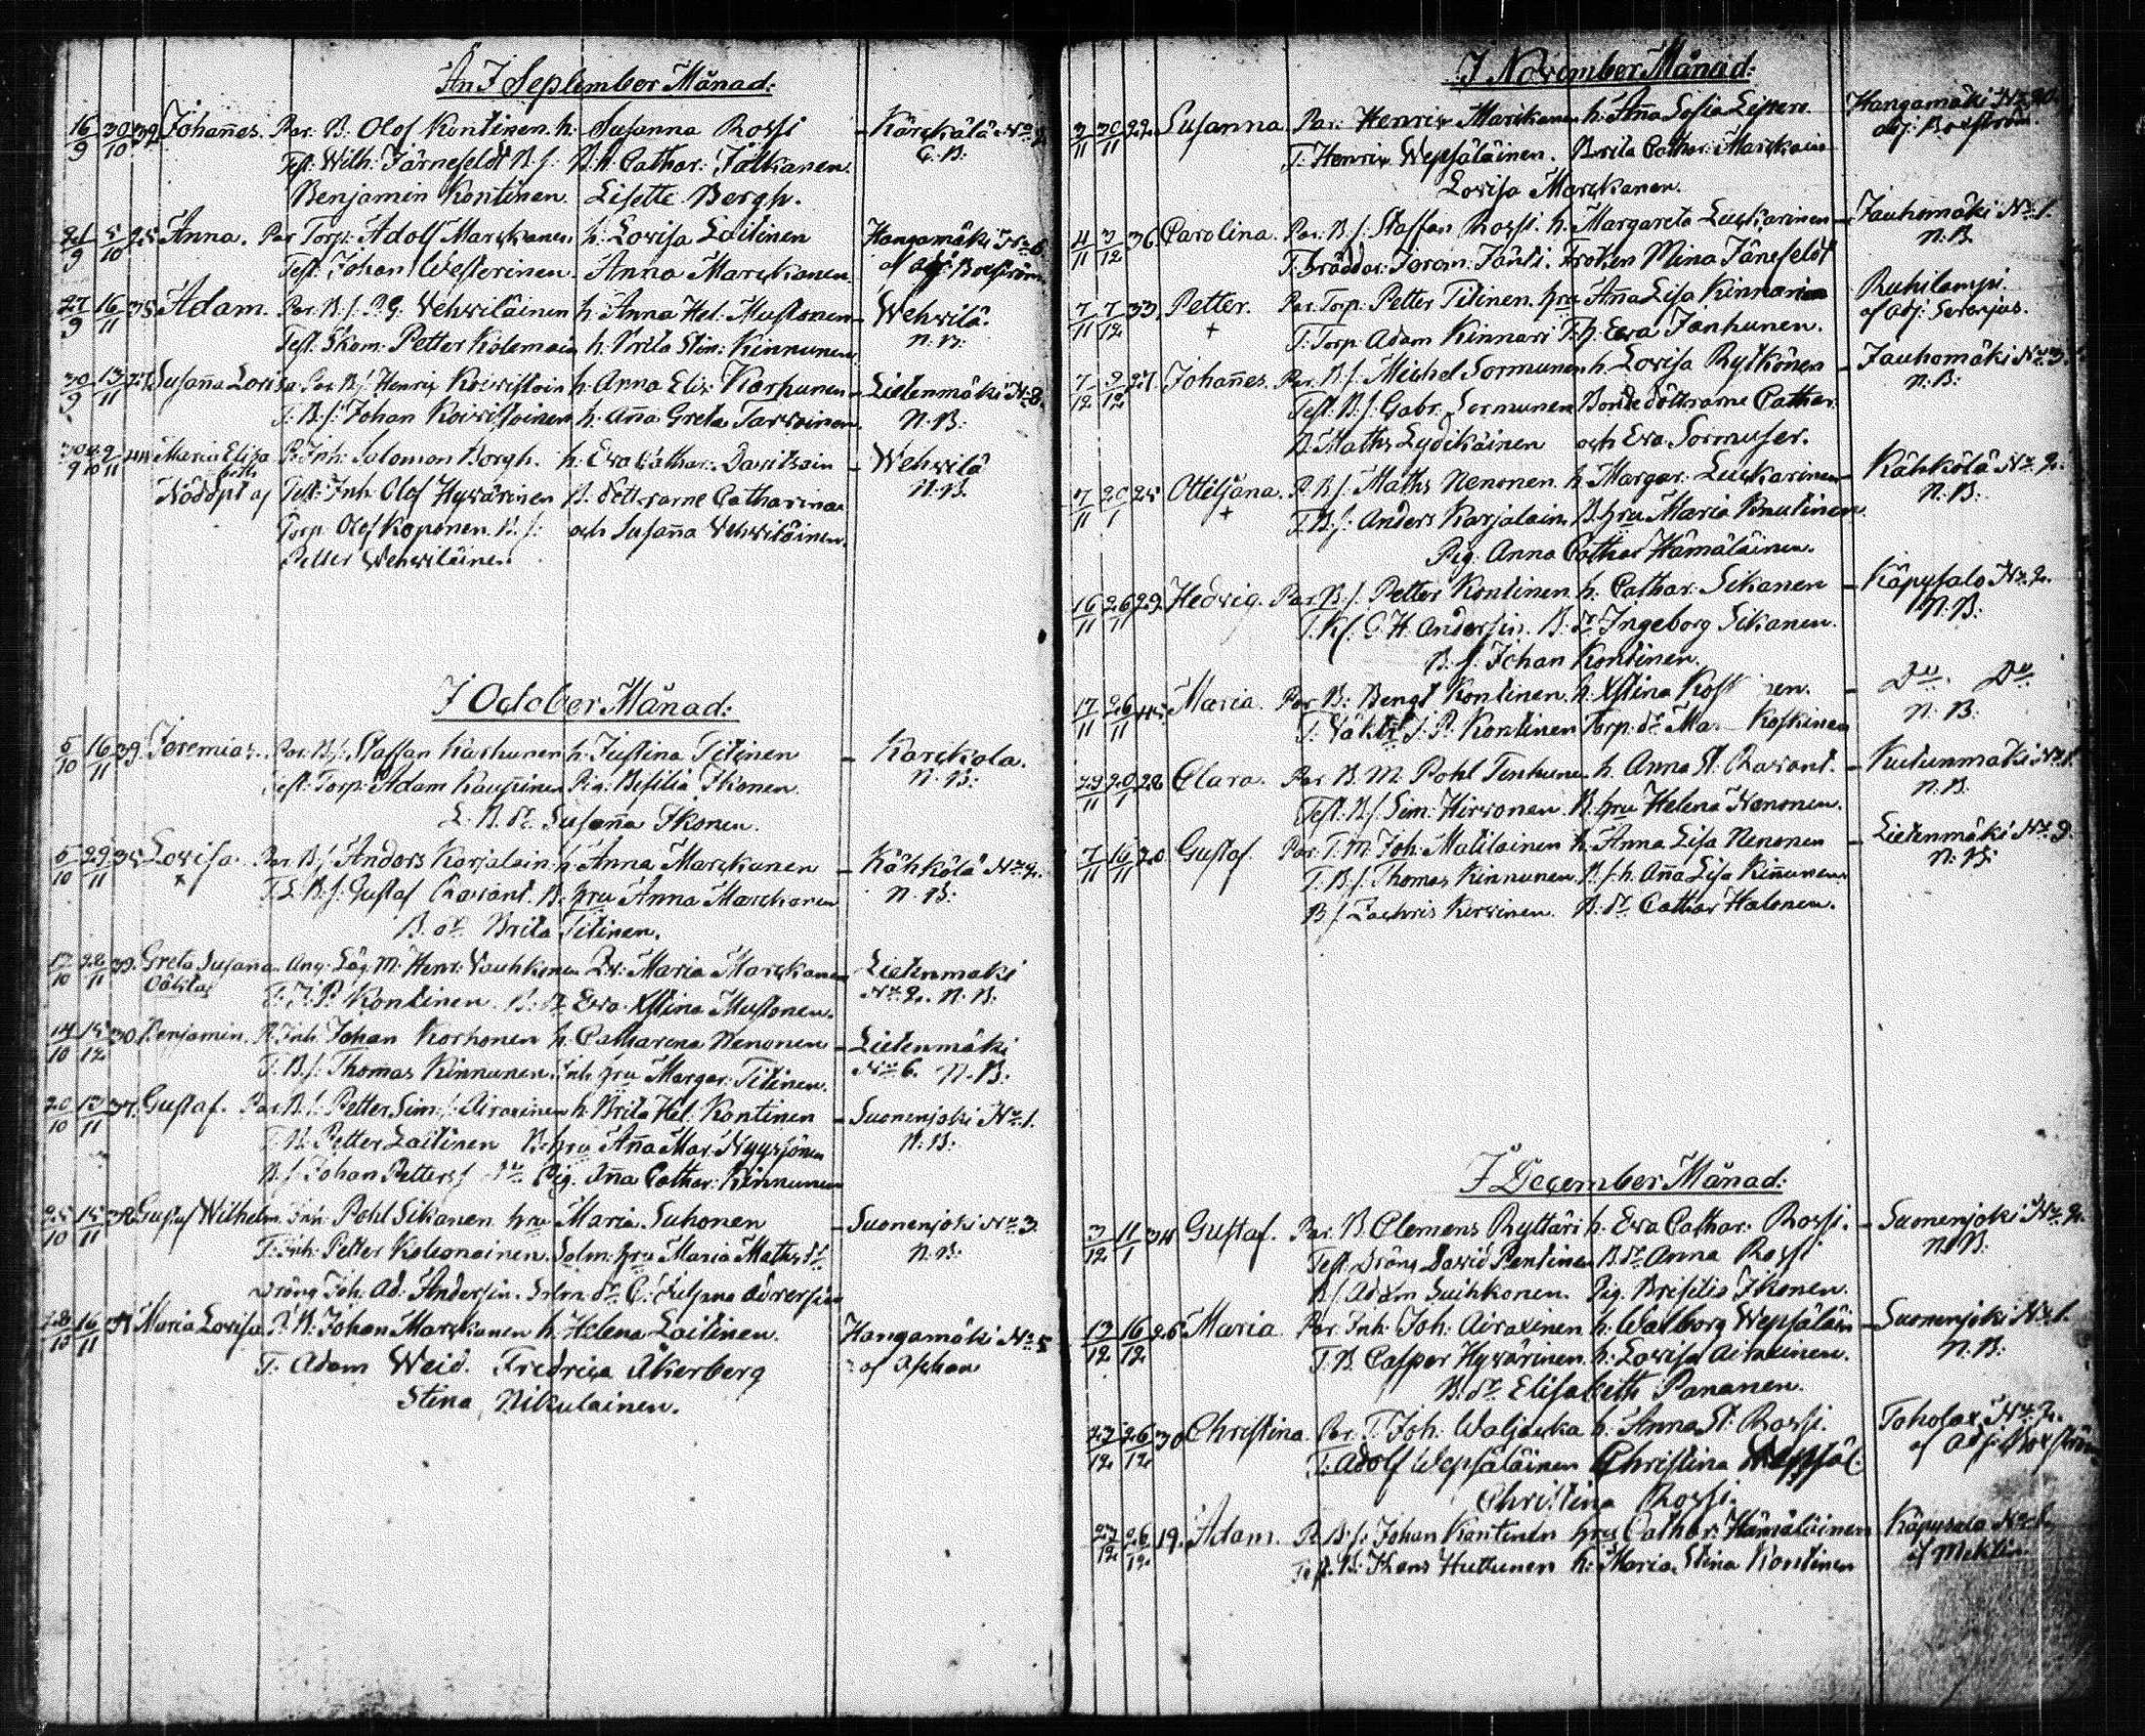 Än I September Månad:
16/9 30/10 39 Johañes. Par. B. Olof Kontinen. h. Susanna Rossi – Kärckälä No 2.
Test: Wilh: Järnefeldt B.s: B. h. Cathar: Jälkanen. C. B:
Benjamin Kontinen. Lisette Bergh.
21/9 5/10 25 Anna. Par Torp: Adolf Marckanen h. Lovisa Laitinen Hangamäki No 6
Test. Johan Westerinen. Anna Marckanen. af adj: Boxström
27/9 16/11 35 Adam. Par. B.s. P. G. Wehviläinen h. Anna Hel. Mustonen – Wehvilä.
Test. Skom: Petter Kolemain h. Brita Stin: Kinnunen N. B:
30/9 13/11 27 Susaña Lovisa Par B.s. Henrix Koivistoin h. Anna Elis. Karhunen – Lietenmäki No 8.
T. B.s: Johan Koivistoinen h. Aña Greta Tarvainen. N. B:
Maria Elisa P. Inh: Salomon Borgh. h. Eva Cathar: Davitsain – Wehvilä
beth
Nöddpt af Test: Inh. Olof Hyvärinen B. döttrarne Catharina N. B.
Torp. Olof Koponen. B.s: och Susaña Wehviläinen.
Petter Wehviläinen.
I October Månad:
5/10 16/11 39. Jeremias. Par. B.s. Staffan Karhunen h. Justina Titinen – Karckola.
Test: Torp: Adam Kauppinen Pig: Besilia Ikonen. N. B:
L. B. dr. Susaña Ikonen.
5/10 29/11 35 Lovisa. Par. B.s. Anders Karjalain. h. Anna Marckanen – Kähkölä No 2.
+ T. L. B.s. Gustaf Chavant. B. hru Anna Marckanen N. B:
B. dr. Brita Titinen.
12/10 28/11 39. Greta Susaña. Ang: Läg M. Henr. Vauhkonen Qv: Maria Marckanen – Lietenmäki
Oäkta T. J. P. Kontinen. B. dr Eva Xstina Mustonen. No 2. N. B:
14/10 15/12 30. Benjamin. P. Inh. Johan Korhonen h. Catharina Nenonen – Lietenmäki
T. B.s: Thomas Kinnunen. Inh. hru Margar: Titinen. No 6. N. B:
20/10 13/11 37. Gustaf. Par. B.s. Petter Sim.s. Airaxinen h. Brita Hel. Kontinen – Suonenjoki No 1.
T. B. Petter Laitinen B. hru Aña Mar. Nyyssönen N. B:
B.s. Johan Petterss. Pig. Aña Cathar: Kinnunen
25/10 15/11 Gustaf Wilhelm. Inh. Pohl Sikanen hru Maria Suhonen – Suonenjoki No 3.
T. Inh. Petter Kolemainen. Solm: hru Maria Maths dr. N. B:
Dräng Joh. Ad. Andersin.
28/10 16/11 Maria Lovisa. P. B. Johan Marckanen h. Helena Laitinen. Hangamäki No 5
T. Adam Weid. Fredrica Åkerberg af Aschan
Stina Nikulainen.
I November Månad:
3/11 30/11 22. Susanna. Par: Henrix Marckanen h. Aña Sofia Lipponen. Hangamäki No 20.
T. Henrix Wepsäläinen. Brita Cathar: Marckain adj: Boxström.
Lovisa Marckanen.
4/11 3/12 36. Carolina. Par. B.s. Staffan Rossi. h. Margareta Luckarinen – Jauhomäki No 1.
T. Bröddar: Jeram: Jänti. Fröken Mina Jänefeldt N. B.
7/11 7/12 33. Petter. Par. Torp. Petter Titinen. hru Aña Lisa Kinnarin Ruhilampi.
+ T. Torp Adam Kinnari T. h. Eva Janhunen. af adj: Serenius.
7/12 9/12 27 Johañes. Par. B.s. Michel Sormunen h. Lovisa Rytkönen – Jauhomäki No 3.
Test. B.s. Gabr. Sormunen Bonde döttrarne Cathar. N. B:
B. Maths Lydikäinen och Eva Sormuser.
7/11 20/1 25 Ottiljana. P. B.s. Maths Nenonen. h. Margar. Luckarinen – Kähkölä No 2.
+ T. B.s. Anders Karjalain. B. hru Maria Rautinen. N. B:
Pig. Anna Cathar Hämäläinen.
16/11 26/11 29. Hedvig. Par. B.s. Petter Kontinen h. Cathar. Sikanen – Käpysalo No 2.
T. K.s. C. H. Andersin. B. dr. Ingeborg Sikanen. N. B:
B.s. Johan Kontinen.
17/11 26/11 45. Maria. Par. B. Bengt Kontinen. h. Xstina – Do Do
T. J. P. Kontinen Torp. dr. Mar. Koskinen N. B:
29/11 20/1 28 Clara. Par. B. M. Pohl Tenhunen h. Anna St. Chavant. – Kutunmäki No 1.
Test. B.s. Sim: Hirvonen. B. hru Helena Nenonen. N. B.
7/11 16/11 20 Gustaf. Par. T. M. Joh: Matilainen h. Anna Lisa Nenonen – Lietenmäki No 9.
T. B.s. Thomas Kinnunen. B.s. h. Aña Lisa Kiñunen. N. B:
B.s. Zachris Kervinen. B. dr. Cathar Halonen.
I December Månad:
3/12 11/1 34 Gustaf. Par. B. Clemens Ryttäri h. Eva Cathar: Rossi. – Suonenjoki No 2.
Test Dräng David Pentinen B. dr. Anna Rossi N. B:
B.s. Adam Suihkonen. Pig. Bresilis Ikonen.
13/12 16/12 26 Maria. Par. Inh. Joh: Airaxinen h. Walborg Wepsäläin – Suonenjoki No 1.
T. B. Casper Hyvärinen. h. Lovisa Airaxinen. N. B:
B. dr. Elisabeth Pananen.
23/12 26/12 30 Christina. Par. T. Joh. Waljacka h. Anna St: Rossi. Toholax No 2.
T. Adolf Wepsäläinen Christina Wepsäl. af Adj: Boxström
Christina Rossi.
23/12 26/12 19. Adam. P. B.s. Johan Kontinen hru Cathar: Hämäläinen Käpysalo No 1.
Test. B. Thoms Huttunen h. Maria Stina Kontinen af Meklin.